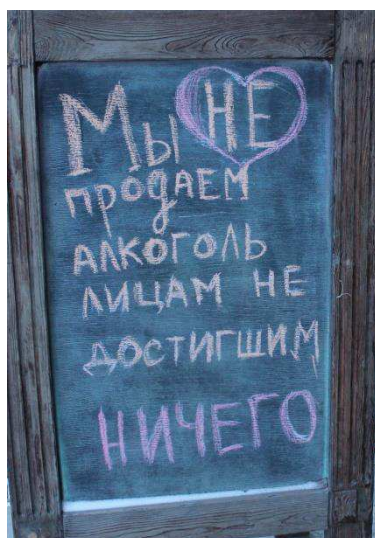 Мы НЕ
продаем
алкоголь
лицам не
достигшим
НИЧЕГО